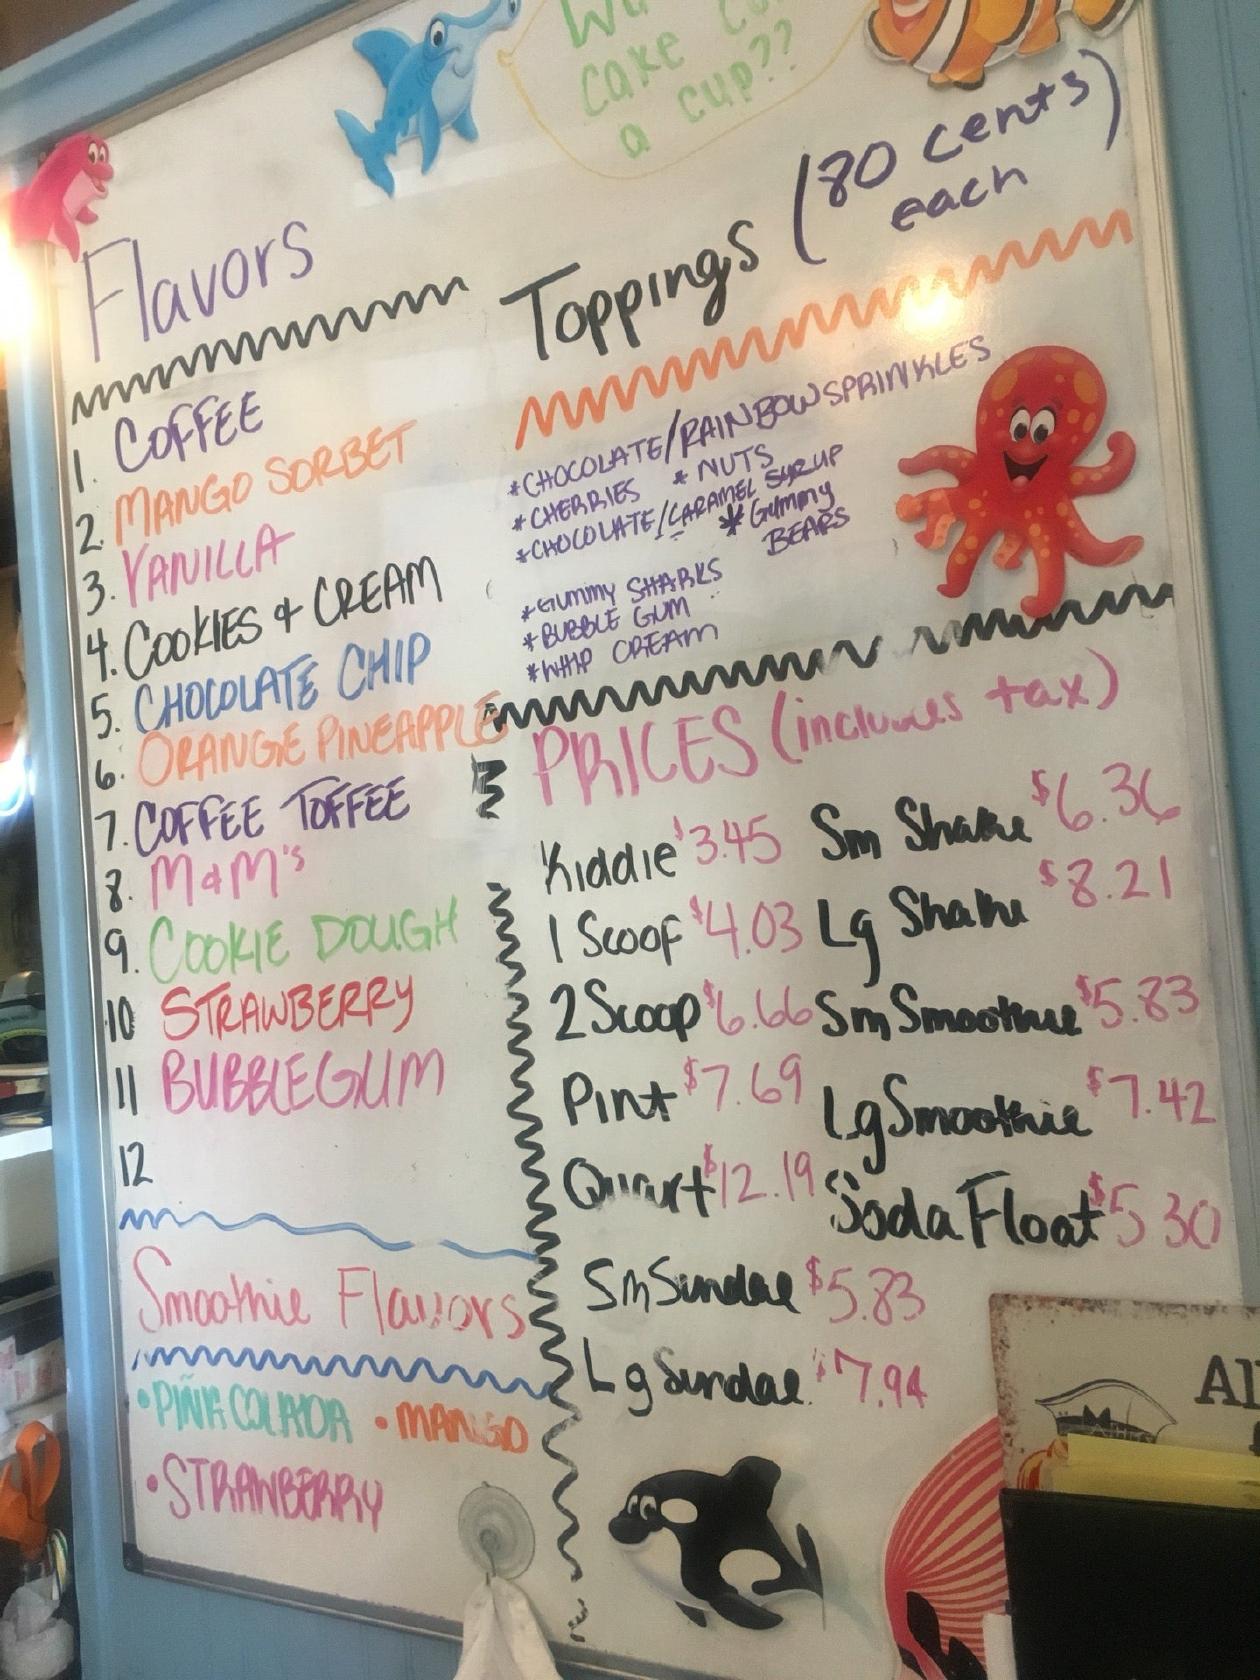 cake
a cup??
Flavors
1. COFFEE
2. MANGO SORBET
3. VANILLA
4. COOKIES & CREAM
5. CHOCOLATE CHIP
6. ORANGE PINEAPPLE
7. COFFEE TOFFEE
8. M&M's
9. COOKIE DOUGH
10 STRAWBERRY
11 BUBBLEGUM
12
Smoothie Flavors
• PIÑA COLADA • MANGO
• STRAWBERRY
Toppings (80 cents
each)
*CHOCOLATE/RAINBOW SPRINKLES
*CHERRIES * NUTS
*CHOCOLATE/CARAMEL SYRUP
* Gummy
BEARS
*Gummy SHARKS
*BUBBLE GUM
*WHIP CREAM
PRICES (includes tax)
Kiddie $3.45 Sm Shake $6.36
1 Scoop $4.03 Lg Shake $8.21
2 Scoop $6.66 Sm Smoothie $5.83
Pint $7.69 Lg Smoothie $7.42
Quart $12.19 Soda Float $5.30
Sm Sundae $5.83
Lg Sundae $7.94